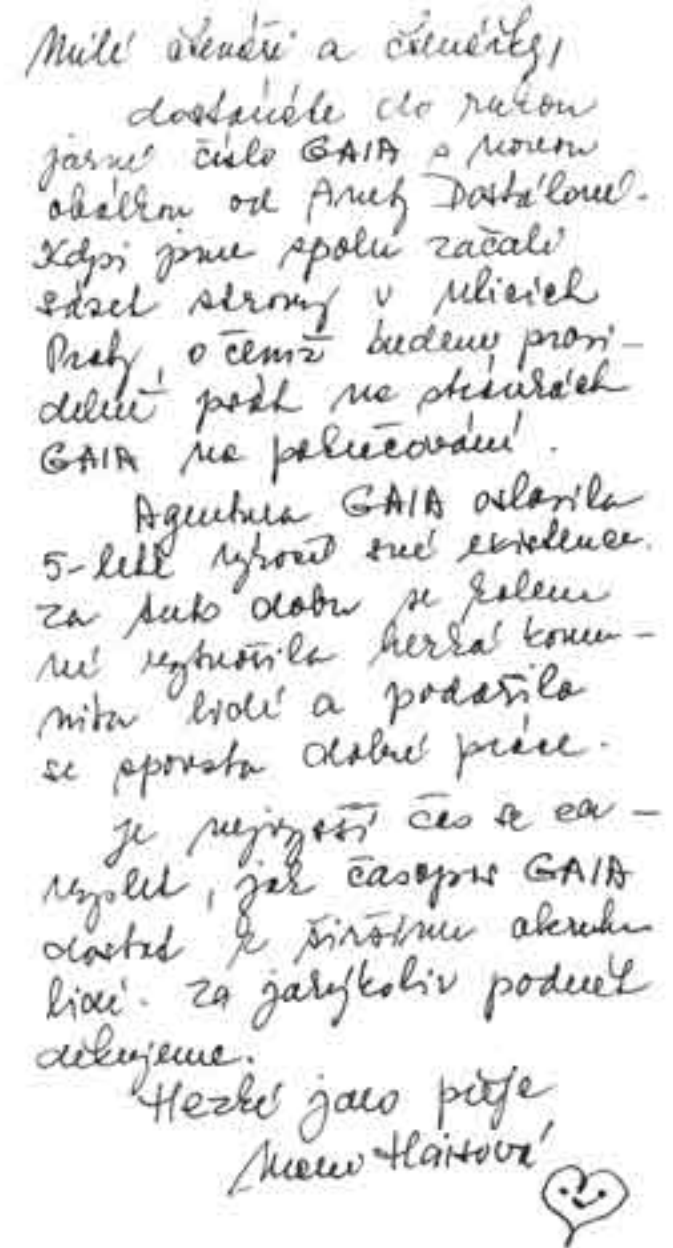 Milé čtenáři a čtenářky,
dostáváte do rukou
jarní číslo GAIA s novou
obálkou od Anety Dostálové.
Kdysi jsme spolu začali
sázet stromy v ulicích
Prahy, o čemž budeme pravi-
delně psát na stránkách
GAIA na pokračování.
Agentura GAIA oslavila
5-leté výročí své existence.
Za tuto dobu se kolem
ní vytvořila hezká komu-
nita lidí a podařilo
se spousta dobré práce.
Je nejvyšší čas se za-
myslet, jak časopis GAIA
dostat k širšímu okruhu
lidí. Za jakýkoliv podnět
děkujeme.
Hezké jaro přeje
Haisová